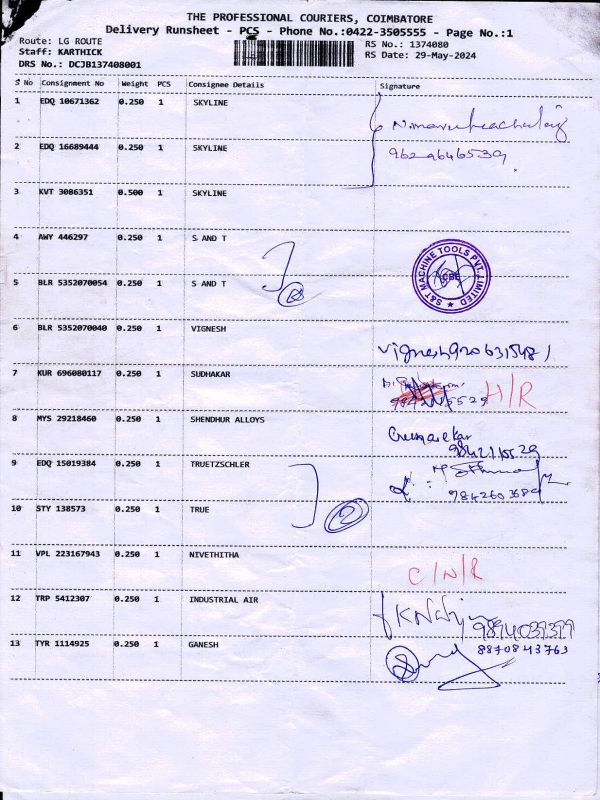 THE PROFESSIONAL COURIERS, COIMBATORE
Delivery Runsheet - PCS - Phone No.:0422-3505555 - Page No.:1
Route: LG ROUTE
Staff: KARTHICK
DRS No.: DCJB137408001
RS No.: 1374080
RS Date: 29-May-2024
S No Consignment No Weight PCS Consignee Details Signature
1 EDQ 10671362 0.250 1 SKYLINE
2 EDQ 16689444 0.250 1 SKYLINE
9629646539
3 KVT 3086351 0.500 1 SKYLINE
4 AWY 446297 0.250 1 S AND T
S&T MACHINE TOOLS PVT. LIMITED
CBE
5 BLR 5352070054 0.250 1 S AND T
6 BLR 5352070040 0.250 1 VIGNESH
7 KUR 696080117 0.250 1 SUDHAKAR
H/R
8 MYS 29218460 0.250 1 SHENDHUR ALLOYS
9 EDQ 15019384 0.250 1 TRUETZSCHLER
10 STY 138573 0.250 1 TRUE
2
11 VPL 223167943 0.250 1 NIVETHITHA
C/N/R
12 TRP 5412307 0.250 1 INDUSTRIAL AIR
13 TYR 1114925 0.250 1 GANESH
8870843763